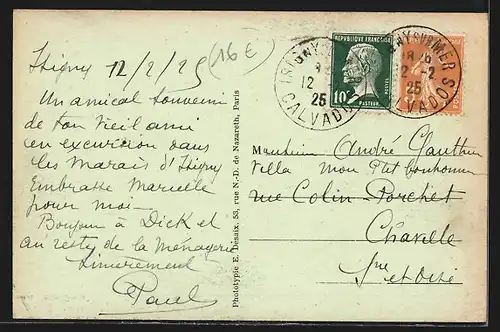 Isigny 12/2/25 (16 E)
Un amical souvenir
de ton vieil ami
en excursion dans
les Marais d'Isigny
Embrasse Marcelle
pour moi
Bonjour à Dick et
au reste de la Ménagerie
Sincèrement
Paul
Phototypie E. Désaix, 53, rue N.-D. de Nazareth, Paris
ISIGNY SUR MER
12
25
CALVADOS
REPUBLIQUE FRANÇAISE
10c
POSTES
PASTEUR
ISIGNY SUR MER
12-2
25
CALVADOS
Monsieur André Gauthier
Villa Mon Ptit bonhomme
rue Colin Porchet
Chaville
Sne et Oise